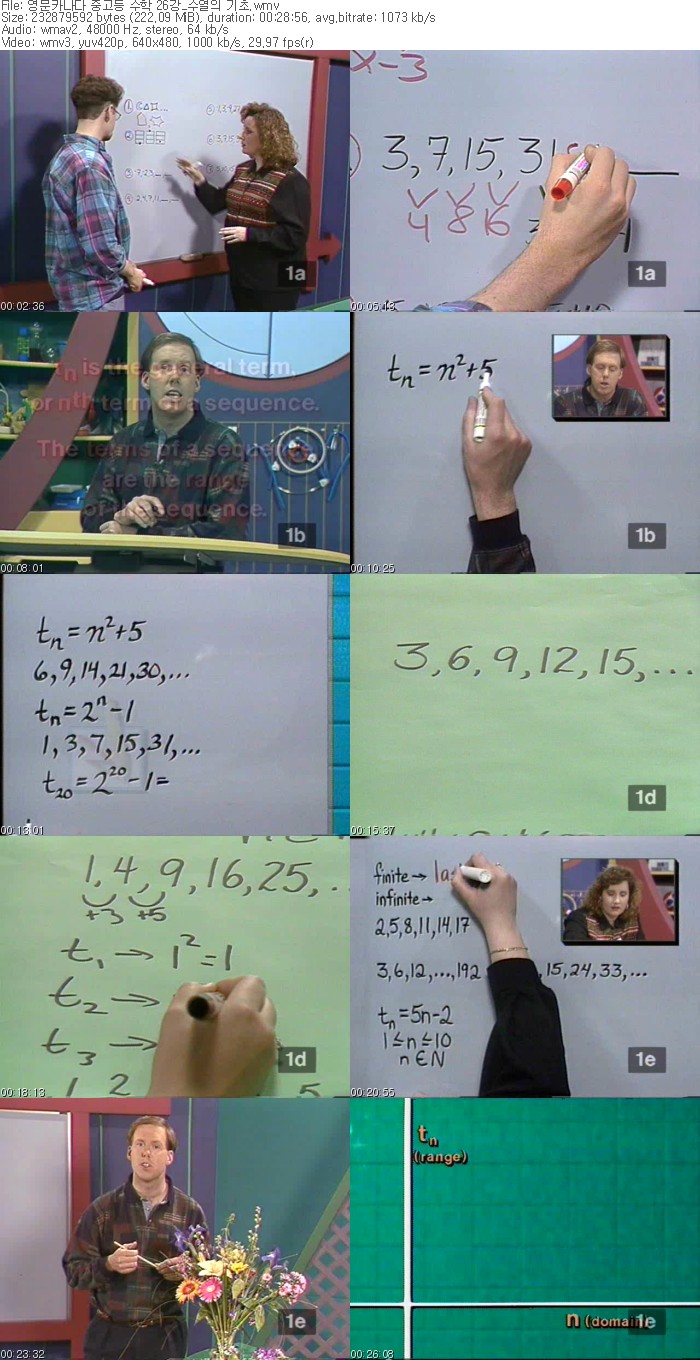 File: 영문캐나다 중고등 수학 26강_수열의 기초.wmv
Size: 232879592 bytes (222,09 MiB), duration: 00:28:56, avg,bitrate: 1073 kb/s
Audio: wmav2, 48000 Hz, stereo, 64 kb/s
Video: wmv3, yuv420p, 640x480, 1000 kb/s, 29,97 fps(r)
1a
00:02:36
x-3
3,7,15,31
4 8 16
1a
tn is the general term,
or nth term of a sequence.
The terms of a sequence
are the range
of the sequence.
1b
00:08:01
tn=n²+5
1b
00:10:25
tn=n²+5
6,9,14,21,30,...
tn=2ⁿ-1
1,3,7,15,31,...
t20=2²⁰-1=
00:13:01
3,6,9,12,15,...
1d
00:15:37
1,4,9,16,25,..
+3 +5
t1→1²=1
t2→
t3→
1d
00:18:13
finite→ la
infinite→
2,5,8,11,14,17
3,6,12,...,192 ,15,24,33,...
tn=5n-2
1≤n≤10
n∈N
1e
00:20:55
1e
00:23:32
tn
(range)
n (domain)
1e
00:26:08